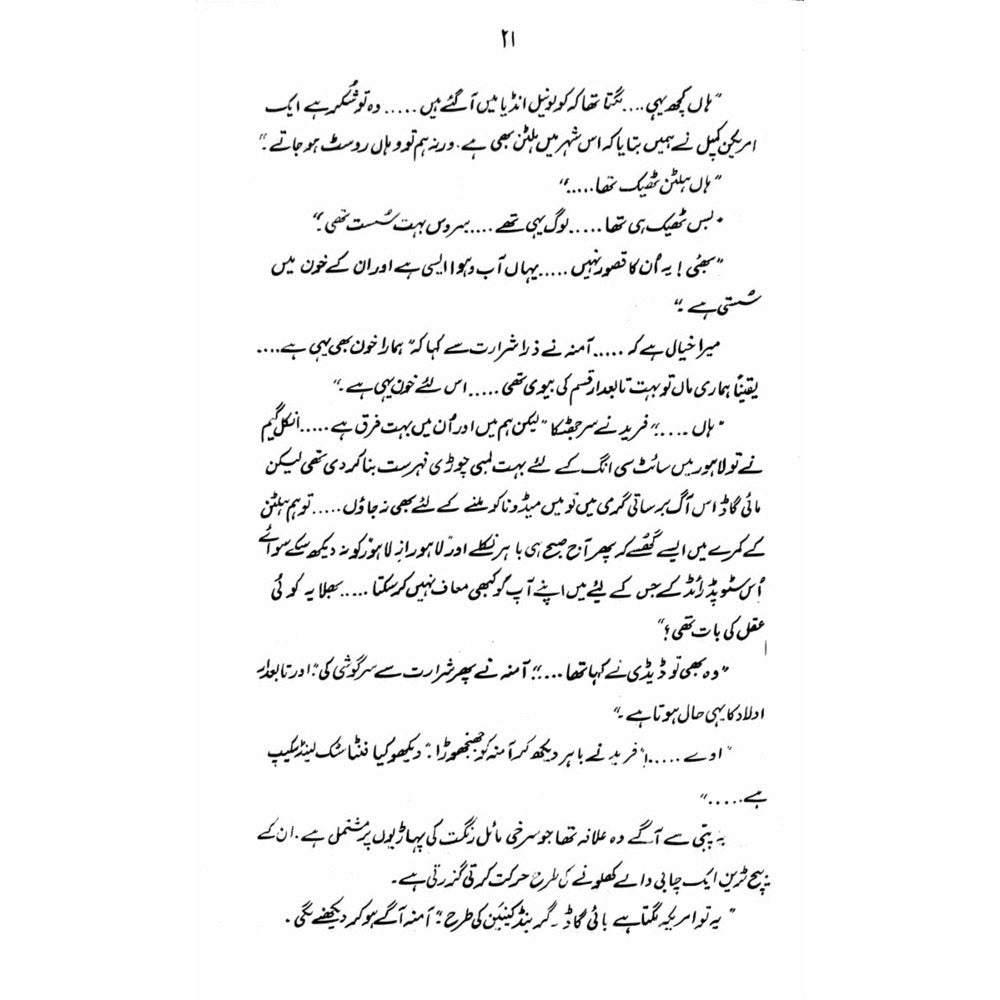 ۲۱
"ہاں کچھ یہی.... لگتا تھا کہ کولونیل انڈیا میں آ گئے ہیں..... وہ تو شکر ہے ایک
امریکن کپل نے ہمیں بتایا کہ اس شہر میں ہلٹن بھی ہے۔ ورنہ ہم تو وہاں روسٹ ہو جاتے۔"
"ہاں ہلٹن ٹھیک تھا....."
"بس ٹھیک ہی تھا..... لوگ یہی تھے.... سروس بہت سُست تھی۔"
"بھئی! یہ اُن کا قصور نہیں..... یہاں آب و ہوا ایسی ہے اور ان کے خون میں
سُستی ہے۔"
میرا خیال ہے کہ..... آمنہ نے ذرا شرارت سے کہا کہ "ہمارا خون بھی یہی ہے....
یقیناً ہماری ماں تو بہت تابعدار قسم کی بیوی تھی..... اس لئے خون یہی ہے۔"
"ہاں ....." فرید نے سر جھٹکا "لیکن ہم میں اور اُن میں بہت فرق ہے..... انکل گیم
نے تو لاہور میں سائٹ سی انگ کے لئے بہت لمبی چوڑی فہرست بنا کر دی تھی لیکن
مائی گاڈ اس آگ برساتی گرمی میں تو میں میڈونا کو ملنے کے لئے بھی نہ جاؤں..... تو ہم ہلٹن
کے کمرے میں ایسے گُھسے کہ پھر آج صبح ہی باہر نکلے اور "لاہور از لاہور" کو نہ دیکھ سکے سوائے
اُس سٹوپڈ رائڈ کے جس کے لیئے میں اپنے آپ کو کبھی معاف نہیں کر سکتا..... بھلا یہ کوئی
عقل کی بات تھی؟"
"وہ بھی تو ڈیڈی نے کہا تھا....." آمنہ نے پھر شرارت سے سرگوشی کی "اور تابعدار
اولاد کا یہی حال ہوتا ہے۔"
"اوے .....!" فرید نے باہر دیکھ کر آمنہ کو جھنجھوڑا۔ "دیکھو کیا فنٹاسٹک لینڈ سکیپ
ہے....."
یہ پبی سے آگے وہ علاقہ تھا جو سرخی مائل رنگت کی پہاڑیوں پر مشتمل ہے۔ ان کے
بیچ ٹرین ایک چابی والے کھلونے کی طرح حرکت کرتی گزرتی ہے۔
"یہ تو امریکہ لگتا ہے بائی گاڈ۔ گرینڈ کینین کی طرح" آمنہ آگے ہو کر دیکھنے لگی۔